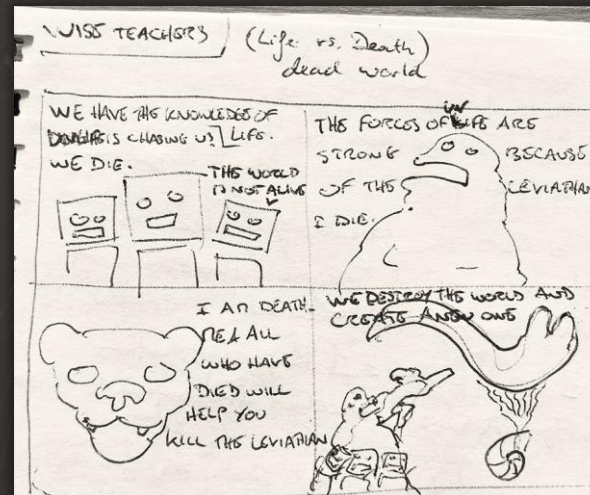 WISE TEACHERS
(Life vs. Death)
dead world
WE HAVE THE KNOWLEDGE OF
IS CHASING US. LIFE.
WE DIE.
THE WORLD
IS NOT ALIVE
THE FORCES OF LIFE ARE
STRONG BECAUSE
OF THE LEVIATHAN
I DIE.
I AM DEATH.
ME & ALL
WHO HAVE
DIED WILL
HELP YOU
KILL THE LEVIATHAN
WE DESTROY THE WORLD AND
CREATE A NEW ONE